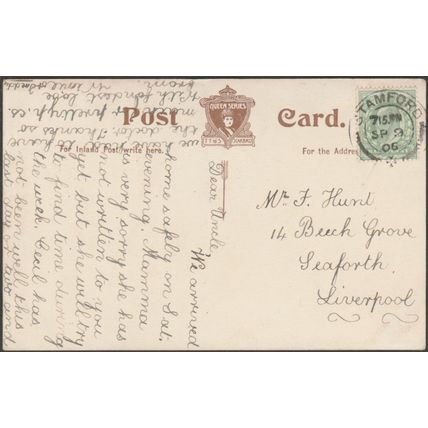 Post Card.
QUEEN SERIES
For Inland Post/write here.
For the Address
STAMFORD
7.15 PM
SP 3
06
Mr F. Hunt
14 Beech Grove
Seaforth
Liverpool
Dear Uncle
We arrived
home safely on Sat.
evening. Mamma
is very sorry she has
not written to you
yet but she will try
to find time during
the week. Cecil has
not been well this
last day or two and
we have
the doctor. Thanks so
much for
With fondest love
from